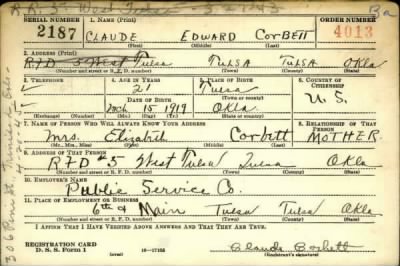 SERIAL NUMBER 1. NAME (Print) ORDER NUMBER
2187 CLAUDE EDWARD CORBETT 4013
(First) (Middle) (Last)
2. ADDRESS (Print)
RFD 5 West Tulsa TULSA TULSA OKLA
(Number and street or R. F. D. number) (Town) (County) (State)
3. TELEPHONE 4. AGE IN YEARS 5. PLACE OF BIRTH 6. COUNTRY OF CITIZENSHIP
21 Tulsa
(Town or county)
DATE OF BIRTH
Mch 15 1919 Okla. U.S.
(Mo.) (Day) (Yr.) (State or country)
7. NAME OF PERSON WHO WILL ALWAYS KNOW YOUR ADDRESS 8. RELATIONSHIP OF THAT PERSON
Mrs. Elizabeth Corbett MOTHER.
(Mr., Mrs., Miss) (First) (Middle) (Last)
9. ADDRESS OF THAT PERSON
RFD #5 West Tulsa Tulsa Okla
(Number and street or R. F. D. number) (Town) (County) (State)
10. EMPLOYER'S NAME
Public Service Co.
11. PLACE OF EMPLOYMENT OR BUSINESS
6th & Main Tulsa Tulsa Okla
(Number and street or R. F. D. number) (Town) (County) (State)
I AFFIRM THAT I HAVE VERIFIED ABOVE ANSWERS AND THAT THEY ARE TRUE.
REGISTRATION CARD
D. S. S. Form 1 16-17105 Claude Corbett
(Registrant's signature)